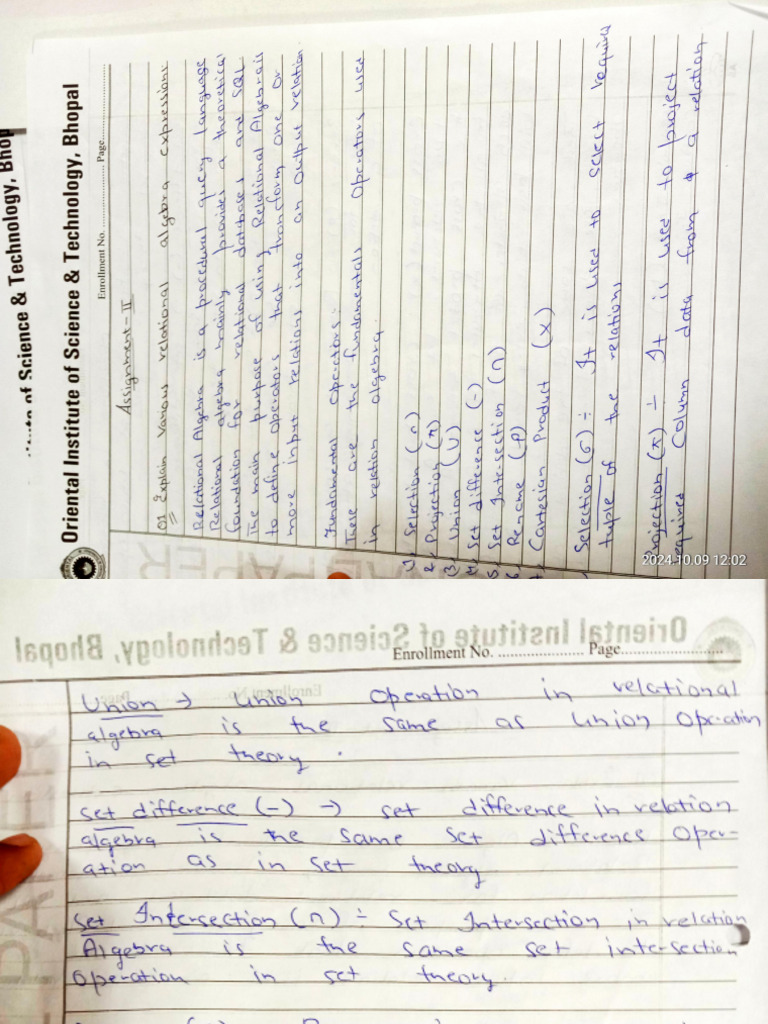 Institute of Science & Technology, Bhop
Oriental Institute of Science & Technology, Bhopal
Enrollment No. .................... Page....................
Assignment-II
Q1 Explain various relational algebra expressions
Relational Algebra is a procedural query language
Relational algebra mainly provides a theoretical
foundation for relational databases and SQL
The main purpose of using Relational Algebra is
to define operators that transform one or
more input relations into an output relation.
Fundamental operators:-
These are the fundamentals operators used
in relation algebra.
1, Selection (σ)
2, Projection (π)
3, Union (U)
4, Set difference (-)
5, Set Inte-section (∩)
6, Rename (ρ)
7, Cartesian Product (X)
Selection (σ) ÷ It is used to select require
tuple of the relations
Projection (π) ÷ It is used to project
required Column data from a relation
2024.10.09 12:02
Oriental Institute of Science & Technology, Bhopal
Enrollment No. .................... Page........................
Union → Union operation in relational
algebra is the same as Union Operation
in set theory.
Set difference (-) → set difference in relation
algebra is the same set difference Oper-
ation as in set theory
Set Intersection (∩) ÷ Set Intersection in relation
Algebra is the same set inte-section
Operation in set theory.